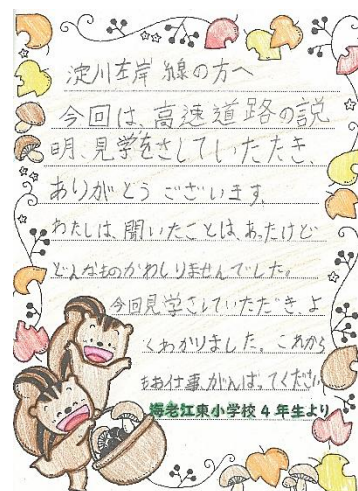 淀川左岸線の方へ
今回は、高速道路の説
明、見学をさしていただき、
ありがとうございます。
わたしは、聞いたことは、あったけど
どんなものかわしりませんでした。
今回見学さしていただき、よ
くわかりました。これから
もお仕事、がんばってください
海老江東小学校4年生より